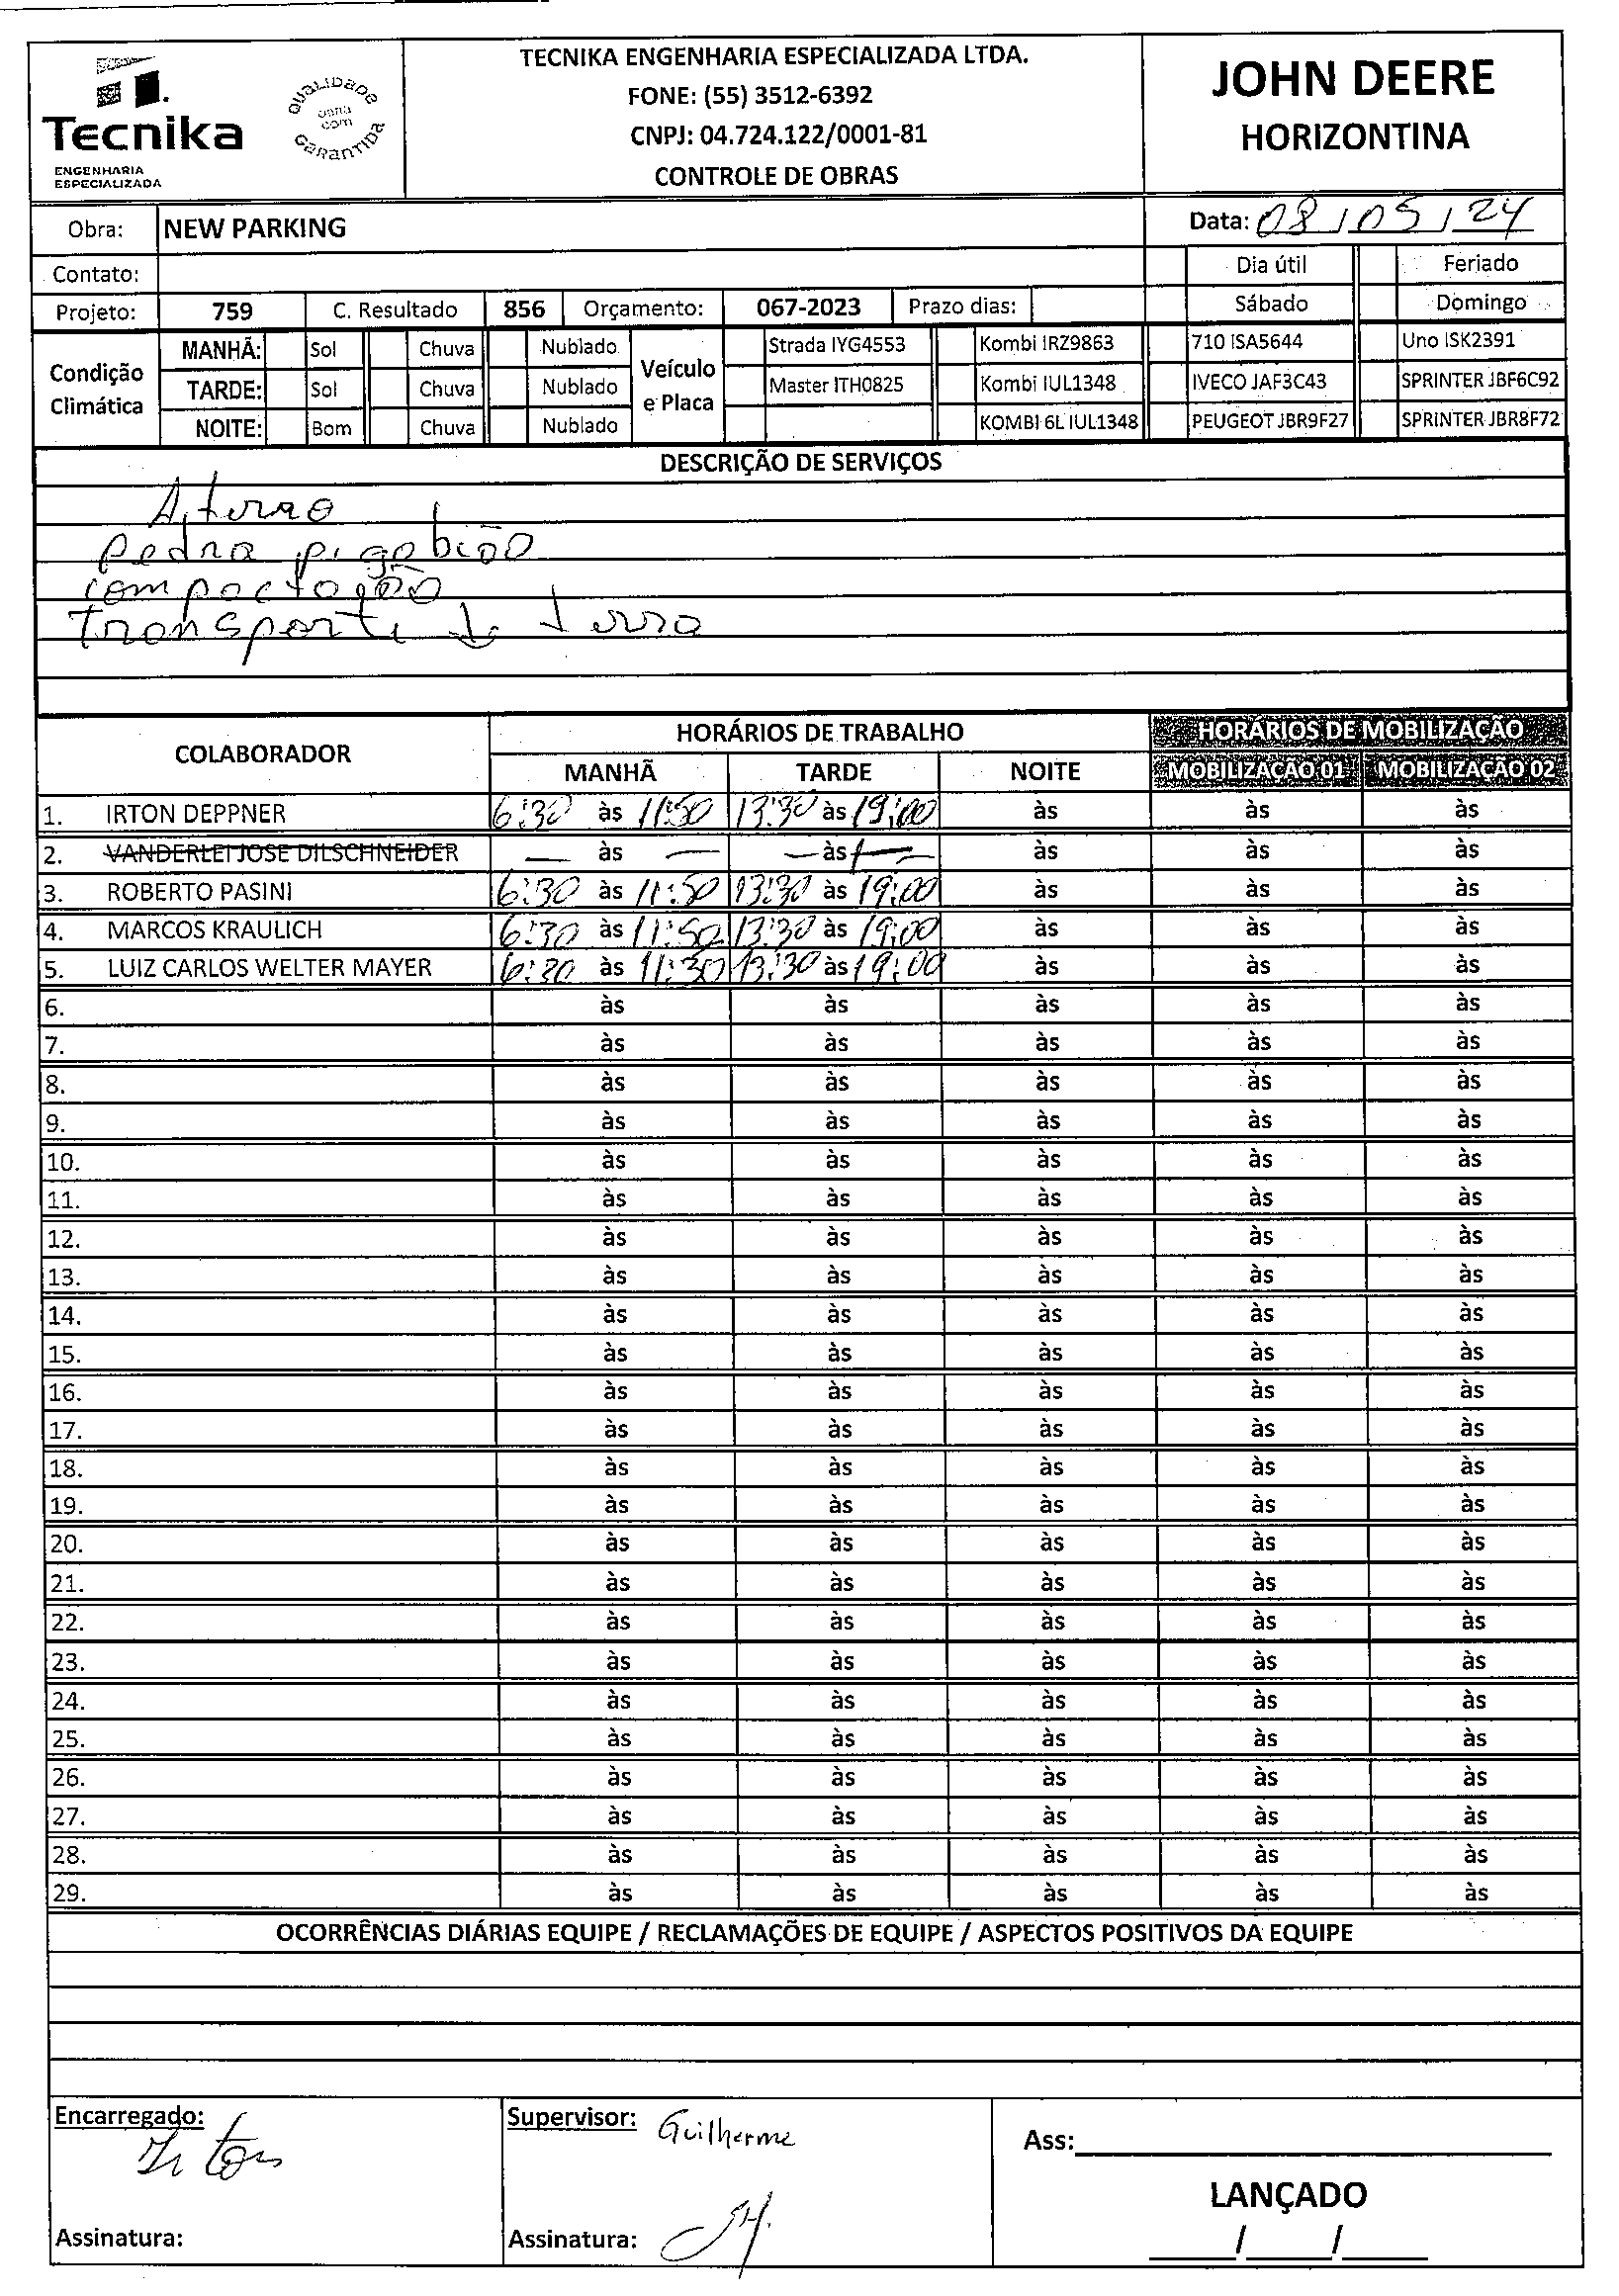 Tecnika
ENGENHARIA
ESPECIALIZADA
QUALIDADE
OBRA
COM
GARANTIDA
TECNIKA ENGENHARIA ESPECIALIZADA LTDA.
FONE: (55) 3512-6392
CNPJ: 04.724.122/0001-81
CONTROLE DE OBRAS
JOHN DEERE
HORIZONTINA
Obra: NEW PARKING Data: 08/05/24
Contato: Dia útil Feriado
Projeto: 759 C. Resultado 856 Orçamento: 067-2023 Prazo dias: Sábado Domingo
Condição Climática MANHÃ: Sol Chuva Nublado Veículo e Placa Strada IYG4553 Kombi IRZ9863 710 ISA5644 Uno ISK2391
TARDE: Sol Chuva Nublado Master ITH0825 Kombi IUL1348 IVECO JAF3C43 SPRINTER JBF6C92
NOITE: Bom Chuva Nublado KOMBI 6L IUL1348 PEUGEOT JBR9F27 SPRINTER JBR8F72
DESCRIÇÃO DE SERVIÇOS
Aterro
Pedra p. gabião
compactação
Transporte de terra
COLABORADOR HORÁRIOS DE TRABALHO HORÁRIOS DE MOBILIZAÇÃO
MANHÃ TARDE NOITE MOBILIZAÇÃO 01 MOBILIZAÇÃO 02
1. IRTON DEPPNER 6:30 às 11:50 13:30 às 19:00 às às às
2. VANDERLEI JOSE DILSCHNEIDER — às — — às — às às às
3. ROBERTO PASINI 6:30 às 11:50 13:30 às 19:00 às às às
4. MARCOS KRAULICH 6:30 às 11:50 13:30 às 19:00 às às às
5. LUIZ CARLOS WELTER MAYER 6:30 às 11:30 13:30 às 19:00 às às às
6. às às às às às
7. às às às às às
8. às às às às às
9. às às às às às
10. às às às às às
11. às às às às às
12. às às às às às
13. às às às às às
14. às às às às às
15. às às às às às
16. às às às às às
17. às às às às às
18. às às às às às
19. às às às às às
20. às às às às às
21. às às às às às
22. às às às às às
23. às às às às às
24. às às às às às
25. às às às às às
26. às às às às às
27. às às às às às
28. às às às às às
29. às às às às às
OCORRÊNCIAS DIÁRIAS EQUIPE / RECLAMAÇÕES DE EQUIPE / ASPECTOS POSITIVOS DA EQUIPE
Encarregado: Supervisor: Guilherme
Irton
Ass:
LANÇADO
Assinatura: Assinatura:
/ /